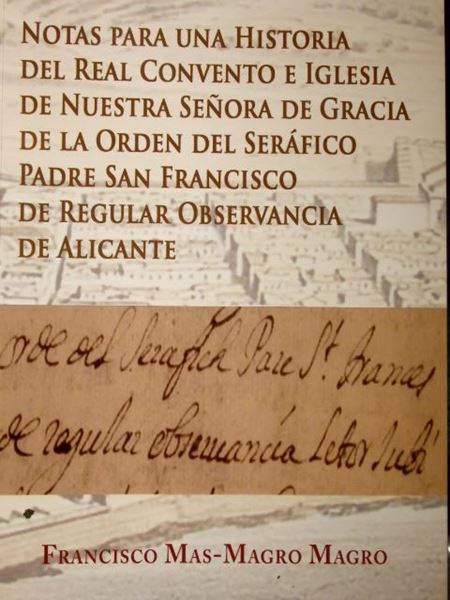 NOTAS PARA UNA HISTORIA
DEL REAL CONVENTO E IGLESIA
DE NUESTRA SEÑORA DE GRACIA
DE LA ORDEN DEL SERÁFICO
PADRE SAN FRANCISCO
DE REGULAR OBSERVANCIA
DE ALICANTE
orde del Serafich Pare St. frances
de regular observancia
FRANCISCO MAS-MAGRO MAGRO